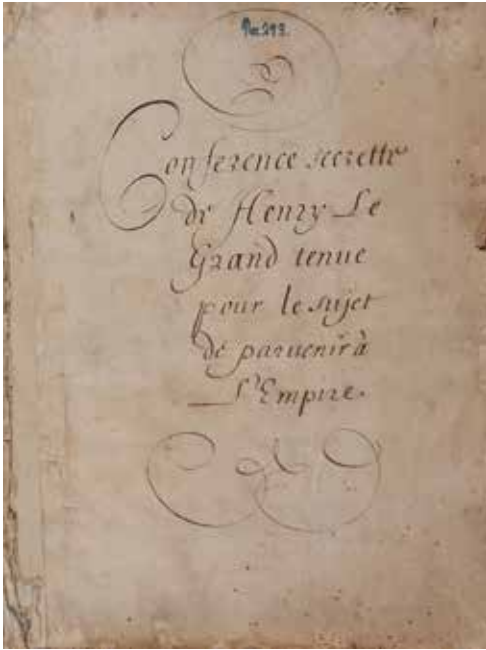 Conference secrette
de Henry Le
Grand tenue
pour le sujet
de parvenir à
L'Empire.